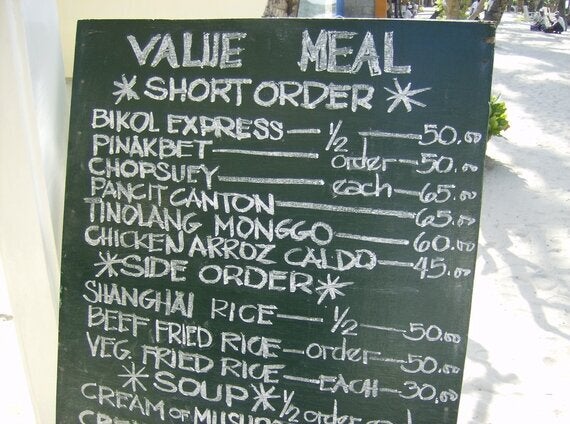 VALUE MEAL
*SHORT ORDER*
BIKOL EXPRESS — 1/2 — 50.00
PINAKBET — order — 50.00
CHOPSUEY — each — 65.00
PANCIT CANTON — 65.00
TINOLANG MONGGO — 60.00
CHICKEN ARROZ CALDO — 45.00
*SIDE ORDER*
SHANGHAI RICE — 1/2 — 50.00
BEEF FRIED RICE — order — 50.00
VEG. FRIED RICE — EACH — 30.00
*SOUP* 1/2 order
CREAM OF